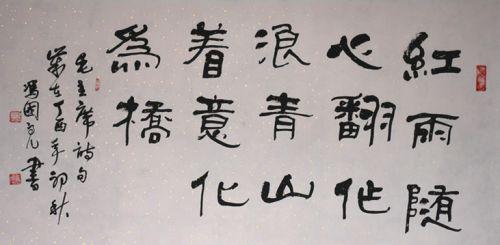 紅雨随
心翻作
浪青山
着意化
為橋
毛主席詩句
歲在丁酉年初秋
馮國 書